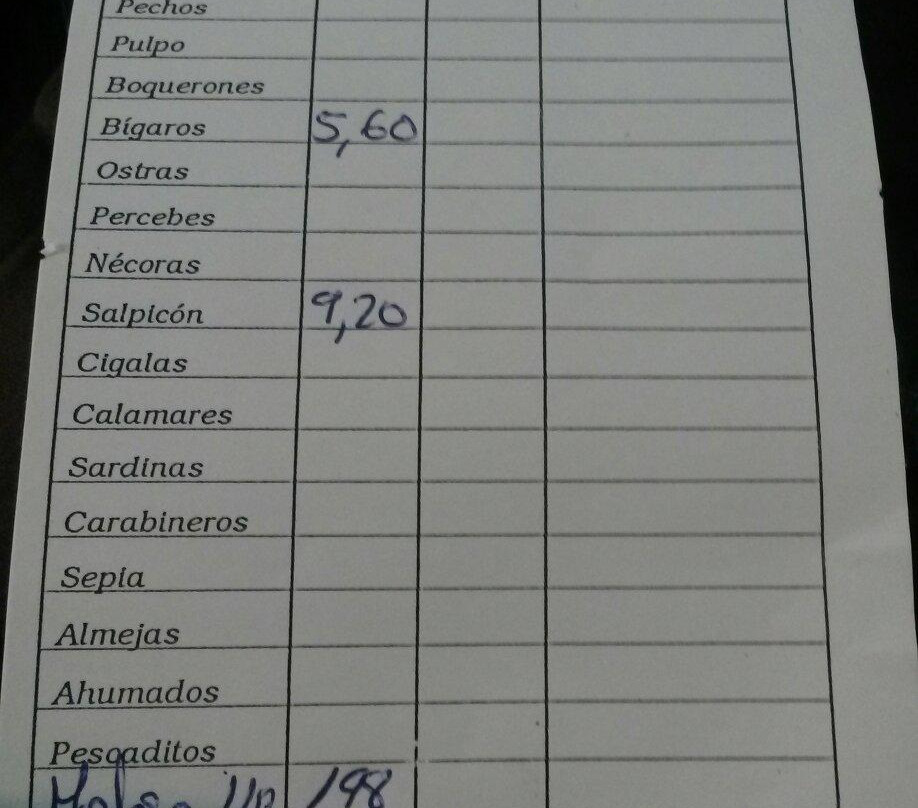 Pechos
Pulpo
Boquerones
Bígaros 5,60
Ostras
Percebes
Nécoras
Salpicón 9,20
Cigalas
Calamares
Sardinas
Carabineros
Sepia
Almejas
Ahumados
Pescaditos
198